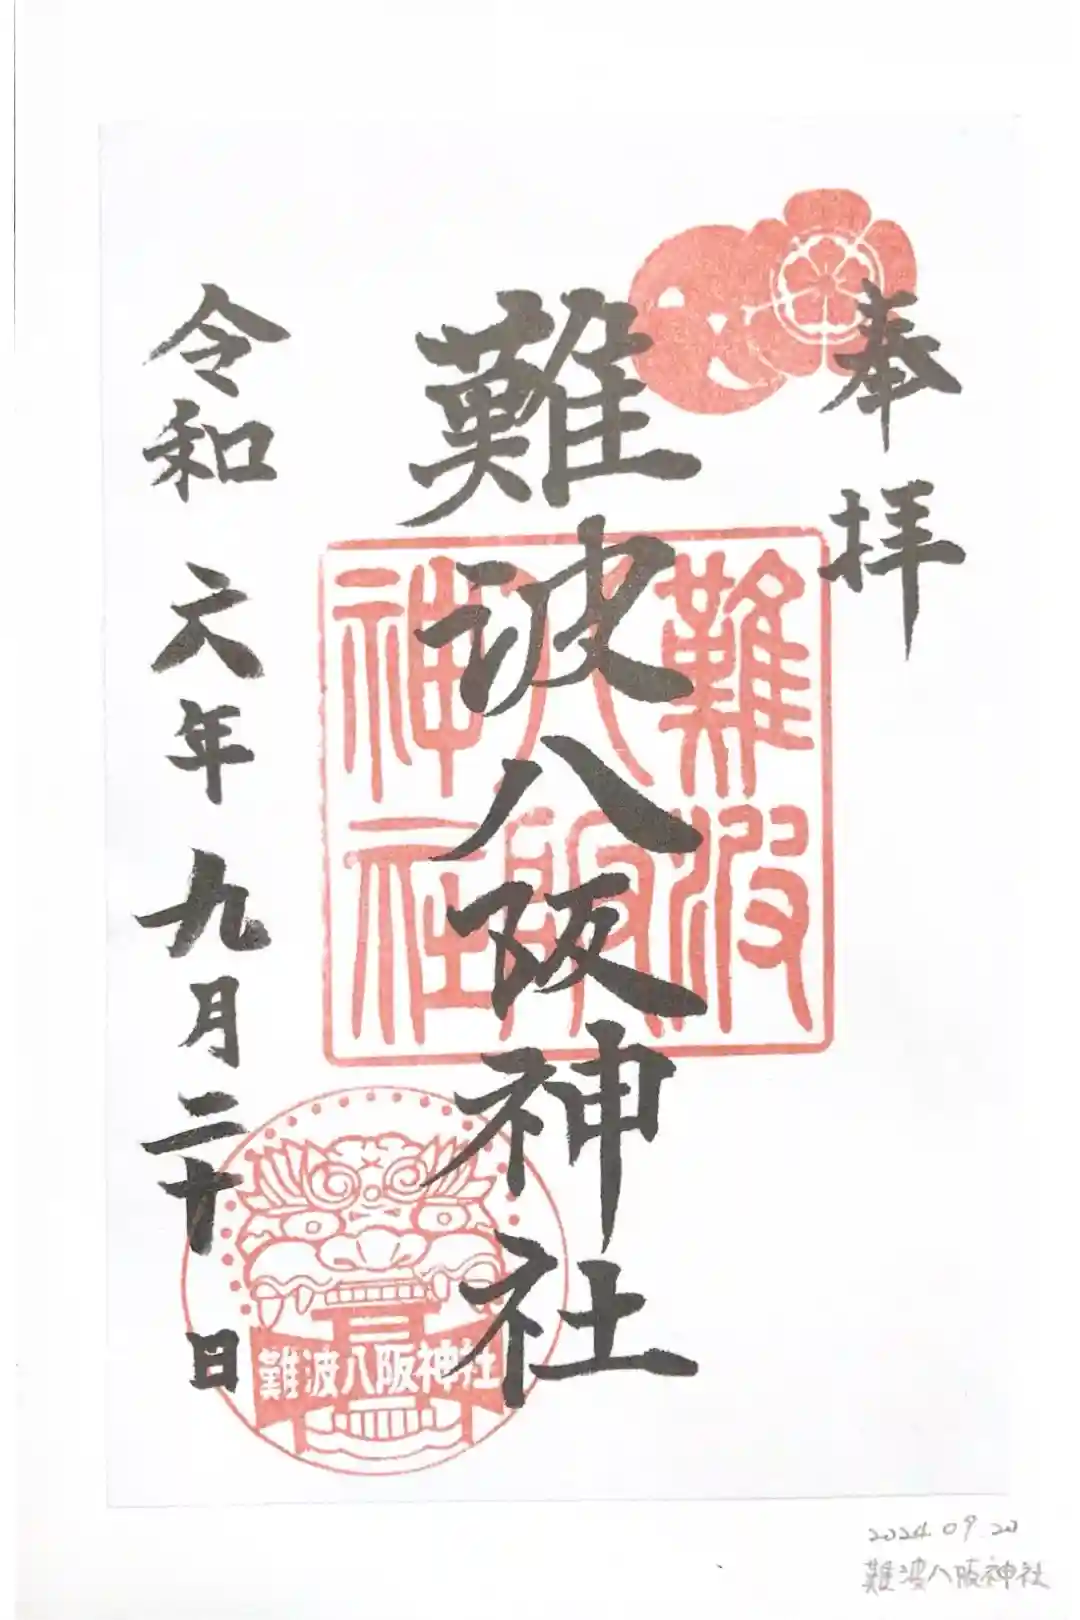 奉拝
難波八阪神社
令和六年九月二十日
難波
八阪
神社
難波八阪神社
2024.09.20
難波八阪神社